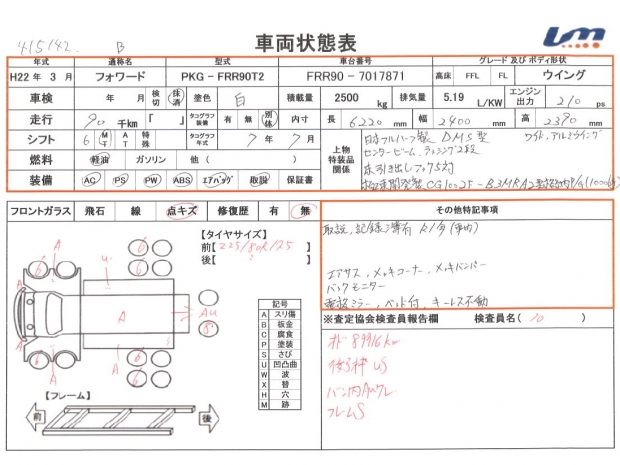 415142. B
車両状態表
年式 通称名 型式 車台番号 グレード 及び ボディ形状
H22 年 3 月 フォワード PKG - FRR90T2 FRR90 - 7017871 高床 FFL FL ウイング
車検 年 月 検切 抹消 塗色 白 積載量 2500 kg 排気量 5.19 L/KW エンジン出力 210 ps
走行 90 千km 「 」 タコグラフ装備 有 無 別体 内寸 長 6220 mm 幅 2400 mm 高 2390 mm
シフト 6 MT AT 特殊 タコグラフ年式 7 年 7 月
上物特装品関係
日本フルハーフ製 DMS型 ワイド、アルミウイング
センタービーム、ラッシング2段
床引き出しフック5対
燃料 軽油 ガソリン 他 ( )
装備 AC PS PW ABS エアバッグ 取説 保証書
フロントガラス 飛石 線 点キズ 修復歴 有 無
その他特記事項
取説、記録簿有
エアサス、メッキコーナー、メッキバンパー
バックモニター
電格ミラー、ベッド付、キーレス不動
【タイヤサイズ】
前【 225/80R17.5 】
後【 〃 】
A A u A A A Au
6 6 6 6 6 6 8
記号
A スリ傷
B 板金
C 腐食
P 塗装
S さび
U 凹凸曲
W 波
X 替
H 穴
M 跡
【フレーム】
前 後
※査定協会検査員報告欄 検査員名( 10 )
オド 89916km
後ろ枠 US
バン内Auクレ
フレームS